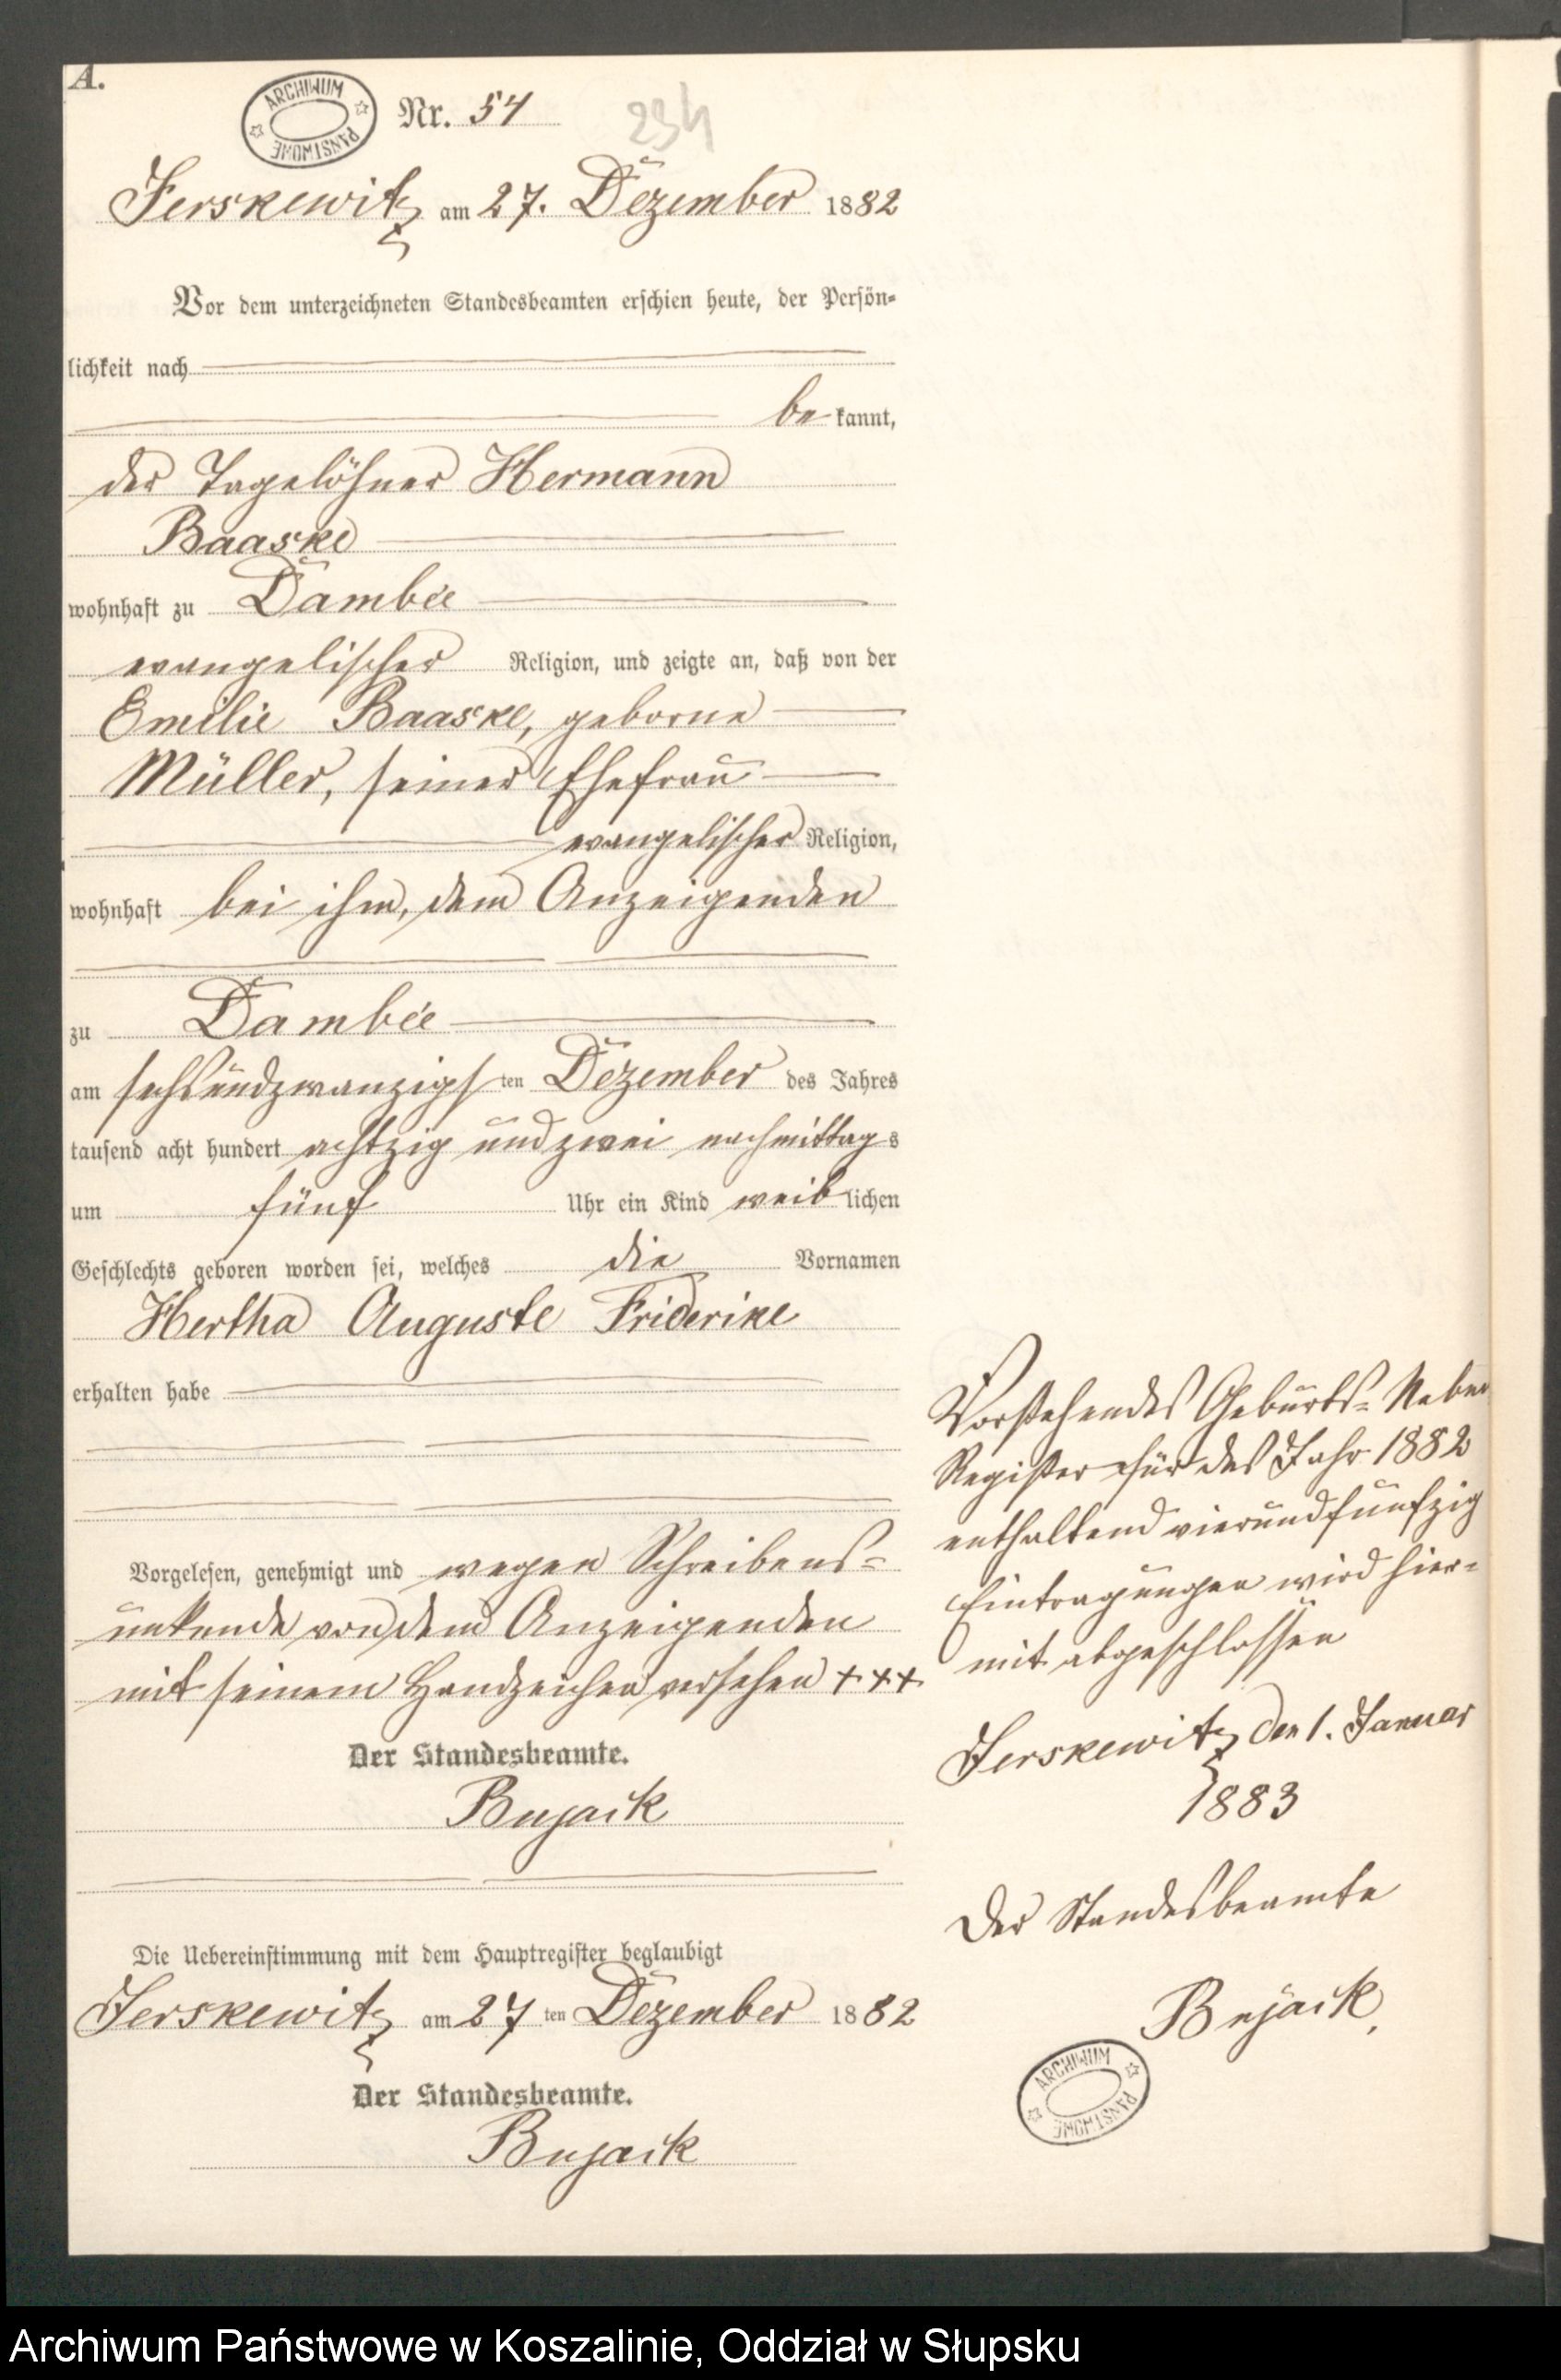 A.
ARCHIWUM PAŃSTWOWE
Nr. 54
234
Jerskewitz am 27. Dezember 1882
Vor dem unterzeichneten Standesbeamten erschien heute, der Persön-
lichkeit nach
be kannt,
der Tagelöhner Hermann
Baaske
wohnhaft zu Dambee
evangelischer Religion, und zeigte an, daß von der
Emilie Baaske, geborne
Müller, seiner Ehefrau
evangelischer Religion,
wohnhaft bei ihm, dem Anzeigenden
zu Dambee
am sechsundzwanzigsten Dezember des Jahres
tausend acht hundert achtzig und zwei nachmittags
um fünf Uhr ein Kind weiblichen
Geschlechts geboren worden sei, welches die Vornamen
Hertha Auguste Friderike
erhalten habe
Vorgelesen, genehmigt und wegen Schreibens-
unkunde von dem Anzeigenden
mit seinem Handzeichen versehen +++
Der Standesbeamte.
Bujack
Die Uebereinstimmung mit dem Hauptregister beglaubigt
Jerskewitz am 27ten Dezember 1882
Der Standesbeamte.
Bujack
Vorstehendes Geburts-Neben
Register für das Jahr 1882
enthaltend vierundfünfzig
Eintragungen wird hier-
mit abgeschlossen
Jerskewitz den 1. Januar
1883
Der Standesbeamte
Bujack,
ARCHIWUM PAŃSTWOWE
Archiwum Państwowe w Koszalinie, Oddział w Słupsku